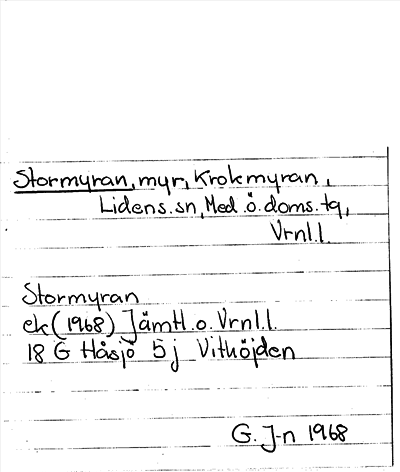 Stormyran, myr, Krokmyran,
Lidens. sn, Med. ö. doms. tg,
Vrnl.l.
Stormyran
ek (1968) Jämtl. o. Vrnl.l.
18 G Håsjö 5 j Vithöjden
G. J-n 1968